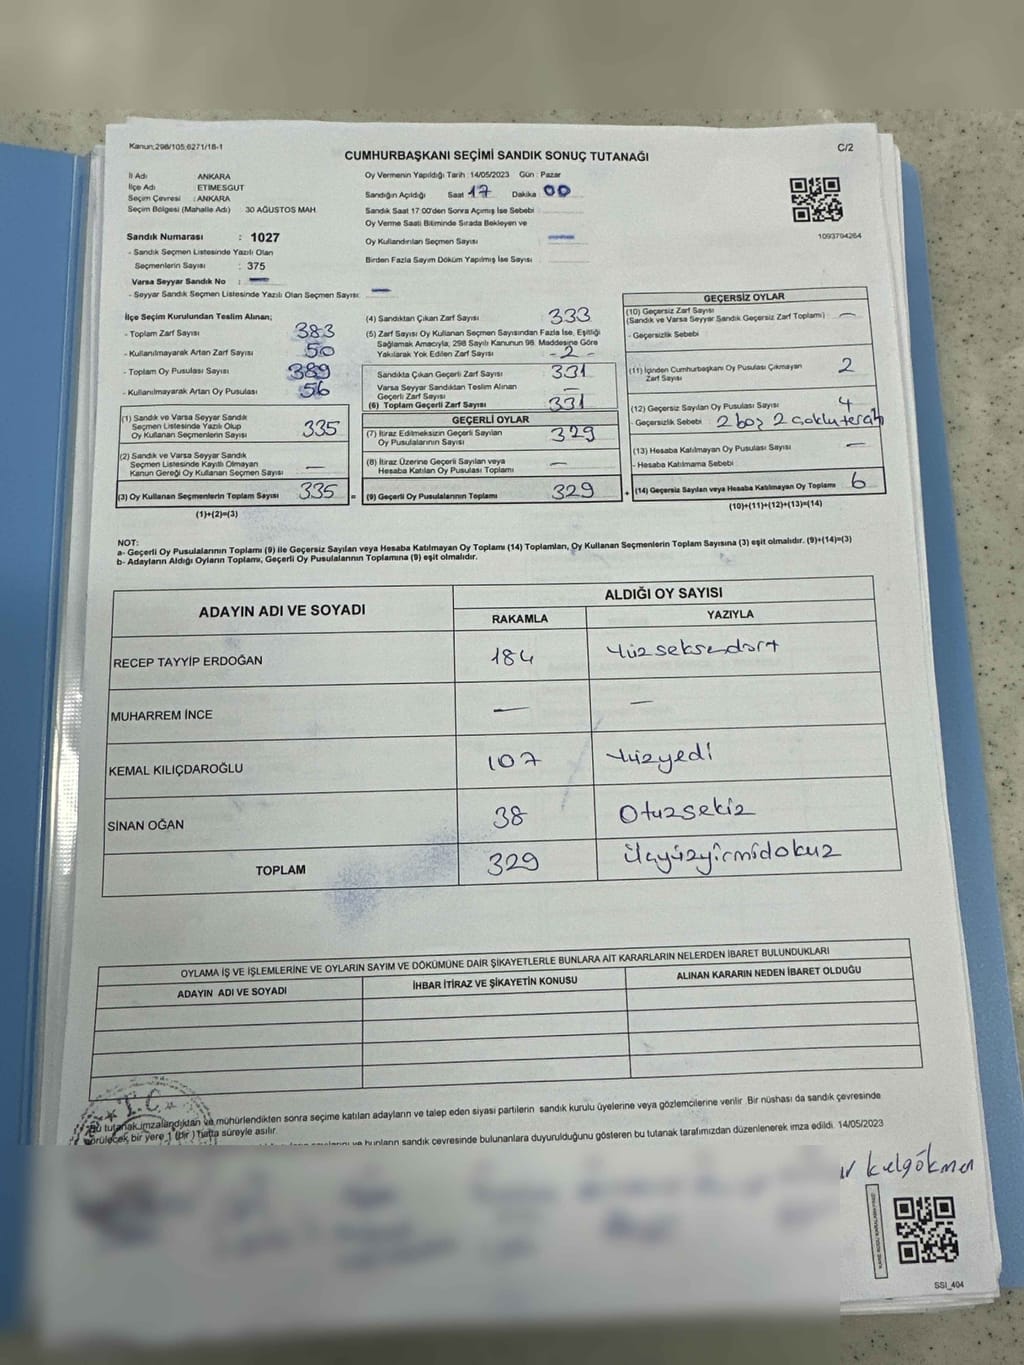 Kanun:298/105;6271/18-1
C/2
CUMHURBAŞKANI SEÇİMİ SANDIK SONUÇ TUTANAĞI
İl Adı ANKARA
İlçe Adı ETİMESGUT
Seçim Çevresi : ANKARA
Seçim Bölgesi (Mahalle Adı) 30 AĞUSTOS MAH.
Sandık Numarası : 1027
- Sandık Seçmen Listesinde Yazılı Olan
Seçmenlerin Sayısı : 375
Varsa Seyyar Sandık No : —
- Seyyar Sandık Seçmen Listesinde Yazılı Olan Seçmen Sayısı: —
Oy Vermenin Yapıldığı Tarih : 14/05/2023 Gün : Pazar
Sandığın Açıldığı Saat 17 Dakika 00
Sandık Saat 17:00'den Sonra Açımış İse Sebebi
Oy Verme Saati Bitiminde Sırada Bekleyen ve
Oy Kullandırılan Seçmen Sayısı —
Birden Fazla Sayım Döküm Yapılmış İse Sayısı
1093794264
İlçe Seçim Kurulundan Teslim Alınan;
- Toplam Zarf Sayısı 383
- Kullanılmayarak Artan Zarf Sayısı 50
- Toplam Oy Pusulası Sayısı 389
- Kullanılmayarak Artan Oy Pusulası 56
(1) Sandık ve Varsa Seyyar Sandık
Seçmen Listesinde Yazılı Olup
Oy Kullanan Seçmenlerin Sayısı 335
(2) Sandık ve Varsa Seyyar Sandık
Seçmen Listesinde Kayıtlı Olmayan
Kanun Gereği Oy Kullanan Seçmen Sayısı —
(3) Oy Kullanan Seçmenlerin Toplam Sayısı 335 =
(1)+(2)=(3)
(4) Sandıktan Çıkan Zarf Sayısı 333
(5) Zarf Sayısı Oy Kullanan Seçmen Sayısından Fazla İse, Eşitliği
Sağlamak Amacıyla; 298 Sayılı Kanunun 98. Maddesine Göre
Yakılarak Yok Edilen Zarf Sayısı - 2 -
Sandıkta Çıkan Geçerli Zarf Sayısı 331
Varsa Seyyar Sandıktan Teslim Alınan
Geçerli Zarf Sayısı —
(6) Toplam Geçerli Zarf Sayısı 331
GEÇERLİ OYLAR
(7) İtiraz Edilmeksizin Geçerli Sayılan
Oy Pusulalarının Sayısı 329
(8) İtiraz Üzerine Geçerli Sayılan veya
Hesaba Katılan Oy Pusulası Toplamı —
(9) Geçerli Oy Pusulalarının Toplamı 329 +
GEÇERSİZ OYLAR
(10) Geçersiz Zarf Sayısı
(Sandık ve Varsa Seyyar Sandık Geçersiz Zarf Toplamı) —
- Geçersizlik Sebebi
(11) İçinden Cumhurbaşkanı Oy Pusulası Çıkmayan
Zarf Sayısı 2
(12) Geçersiz Sayılan Oy Pusulası Sayısı 4
- Geçersizlik Sebebi 2 boş 2 çoklu tercih
(13) Hesaba Katılmayan Oy Pusulası Sayısı —
- Hesaba Katılmama Sebebi
(14) Geçersiz Sayılan veya Hesaba Katılmayan Oy Toplamı 6
(10)+(11)+(12)+(13)=(14)
NOT:
a- Geçerli Oy Pusulalarının Toplamı (9) ile Geçersiz Sayılan veya Hesaba Katılmayan Oy Toplamı (14) Toplamları, Oy Kullanan Seçmenlerin Toplam Sayısına (3) eşit olmalıdır. (9)+(14)=(3)
b- Adayların Aldığı Oyların Toplamı, Geçerli Oy Pusulalarının Toplamına (9) eşit olmalıdır.
ADAYIN ADI VE SOYADI
ALDIĞI OY SAYISI
RAKAMLA YAZIYLA
RECEP TAYYİP ERDOĞAN 184 Yüzseksendört
MUHARREM İNCE — —
KEMAL KILIÇDAROĞLU 107 Yüzyedi
SİNAN OĞAN 38 Otuzsekiz
TOPLAM 329 üçyüzyirmidokuz
OYLAMA İŞ VE İŞLEMLERİNE VE OYLARIN SAYIM VE DÖKÜMÜNE DAİR ŞİKAYETLERLE BUNLARA AİT KARARLARIN NELERDEN İBARET BULUNDUKLARI
ADAYIN ADI VE SOYADI İHBAR İTİRAZ VE ŞİKAYETİN KONUSU ALINAN KARARIN NEDEN İBARET OLDUĞU
T.C.
Bu tutanak imzalandıktan ve mühürlendikten sonra seçime katılan adayların ve talep eden siyasi partilerin sandık kurulu üyelerine veya gözlemcilerine verilir. Bir nüshası da sandık çevresinde
görülecek bir yere 1 (bir) hafta süreyle asılır.
ve bunların sandık çevresinde bulunanlara duyurulduğunu gösteren bu tutanak tarafımızdan düzenlenerek imza edildi. 14/05/2023
SSİ_404